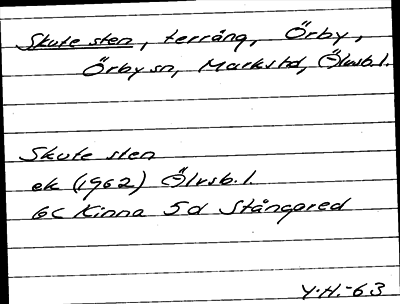 Skute sten, terräng, Örby,
Örby sn, Markshd, Älvsb.l.
Skute sten
ek (1962) Älvsb.l.
6C Kinna 5d Stångared
Y.H.-63